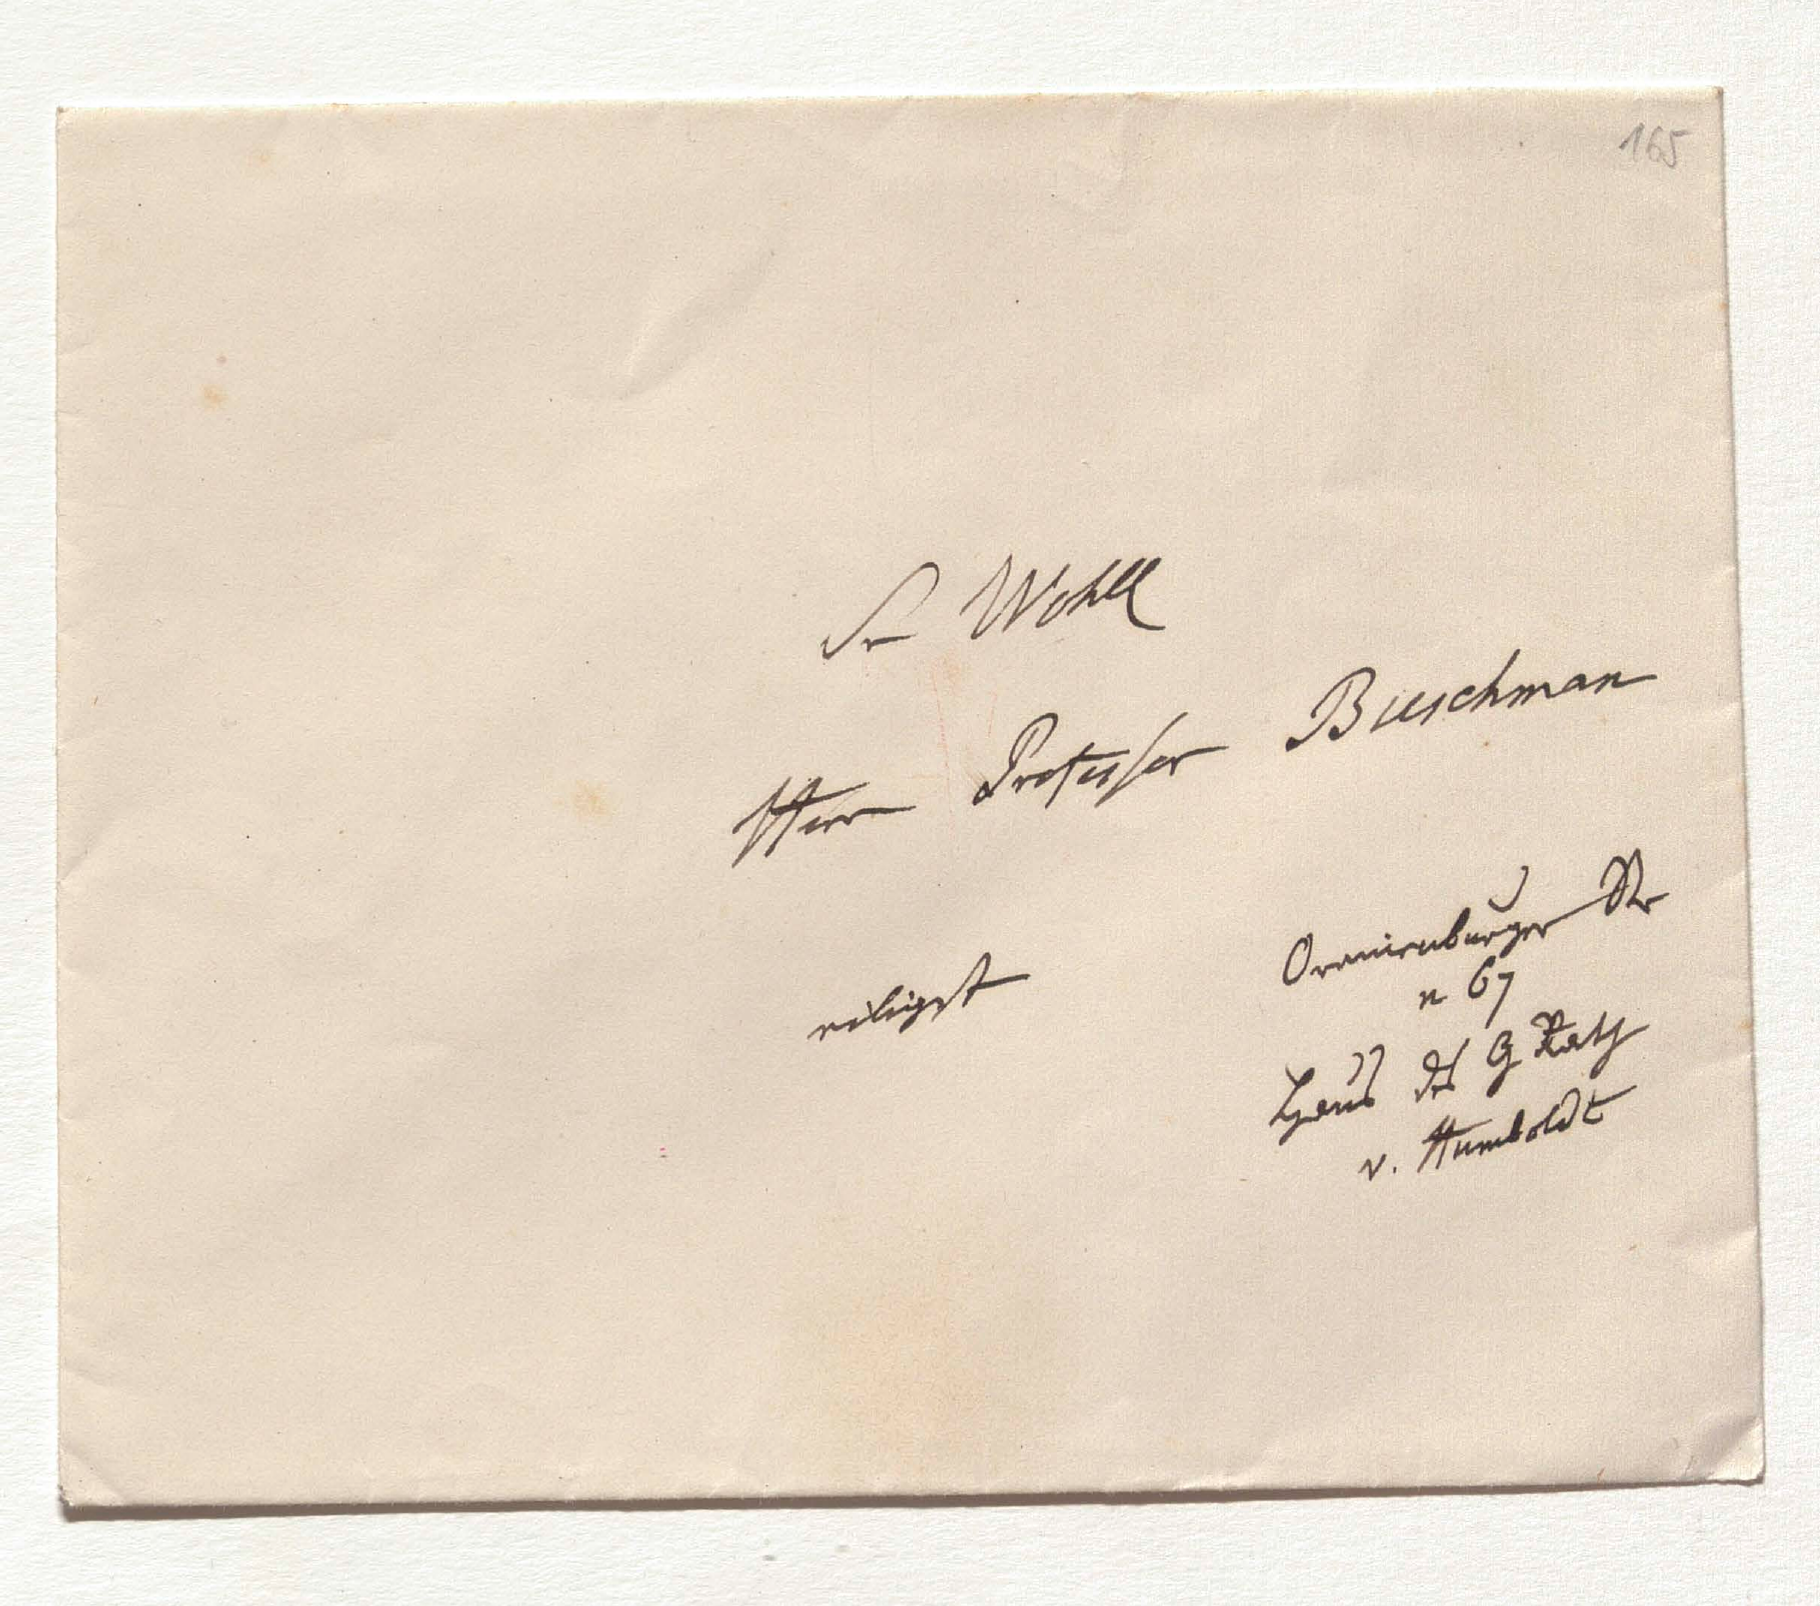 165
Sr Wohll
Herrn Professor Buschman
eiligst
Oranienburger Str
n 67
Haus des G Rath
v. Humboldt